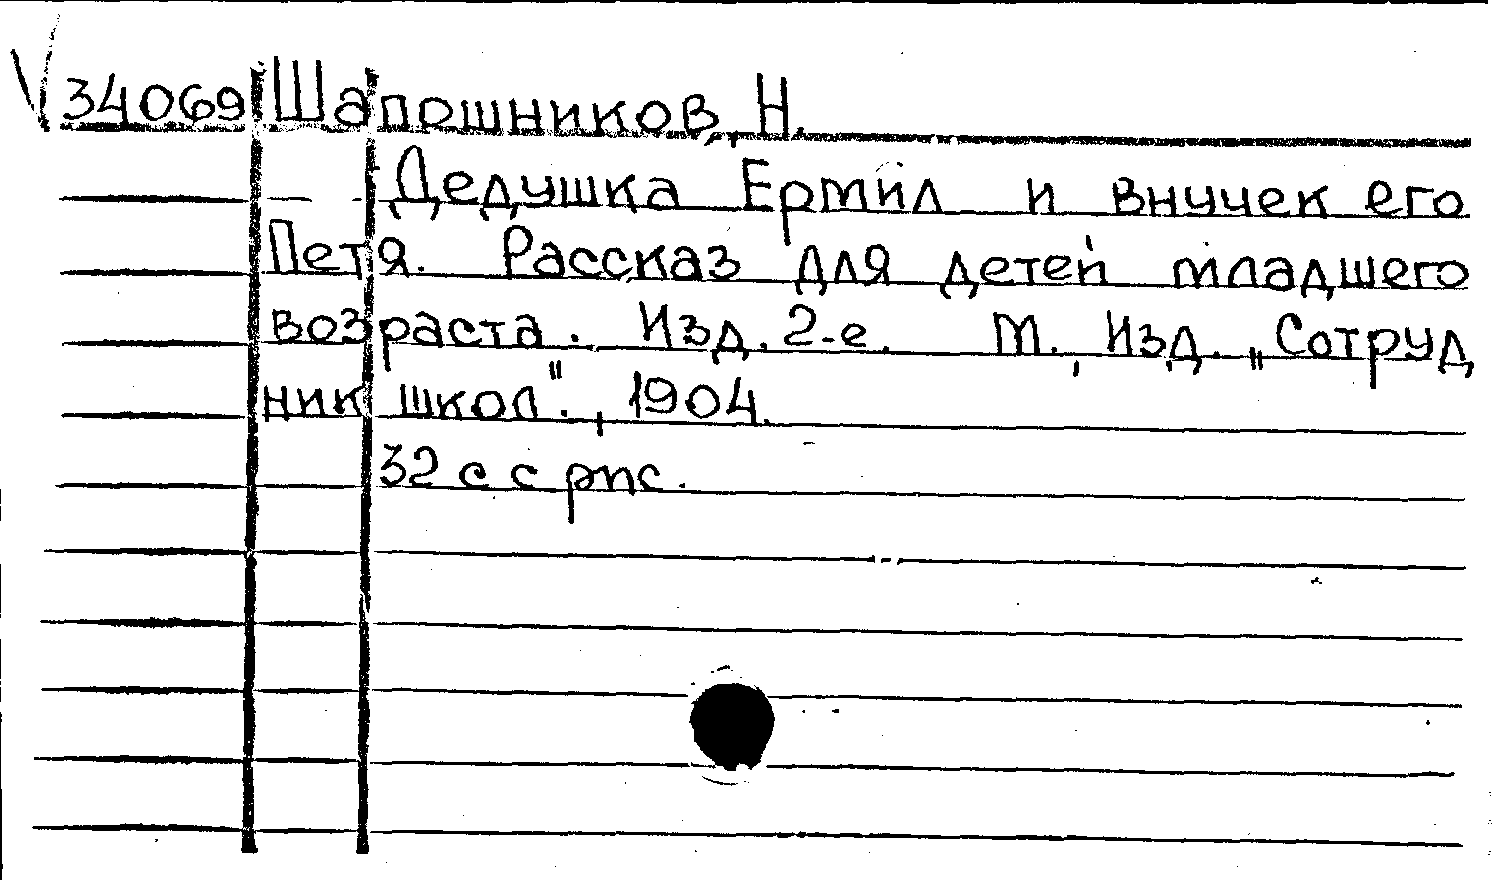 34069 Шапошников, Н.
Дедушка Ермил и внучек его
Петя. Рассказ для детей младшего
возраста. Изд. 2-е. М., Изд. „Сотруд
ник школ"., 1904.
32 с с рис.